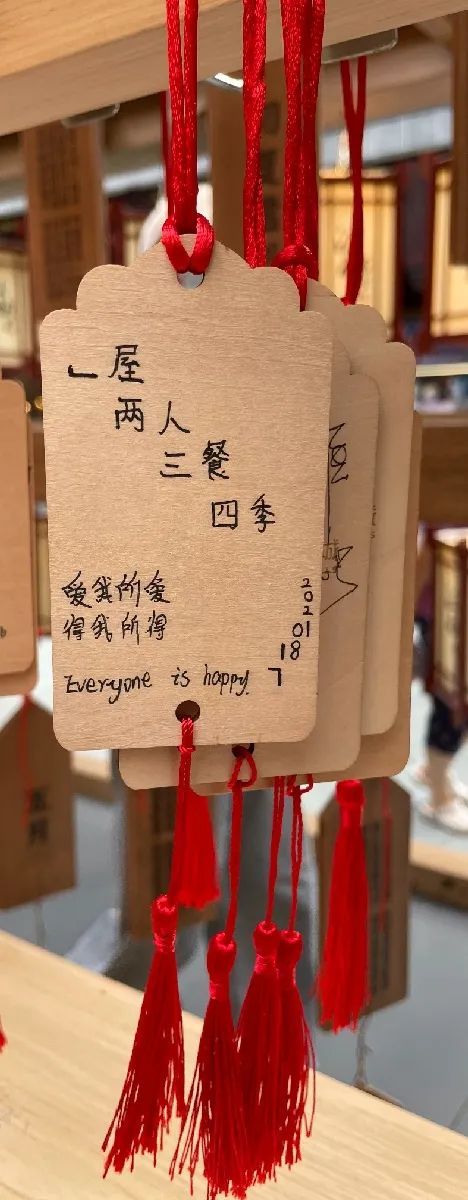 一屋
两人
三餐
四季
爱我所爱
得我所得
Everyone is happy
2
0
2
01
18
7